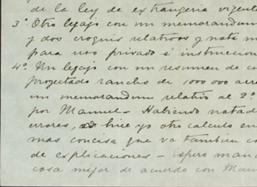 de la ley de extrangeria vigente
3º Otro legajo con un memorandum
y dos croquis relativos y nota m
para uso privado é instruccion
4º Un legajo con un resumen de c
proyectado rancho de 1000 000 acre
un memorandum relativo al 2º
por Manuel. Habiendo notado
errores, hice yo otro calculo en
mas concisa que va tambien co
de explicaciones - Espero man
cosa mejor de acuerdo con Man